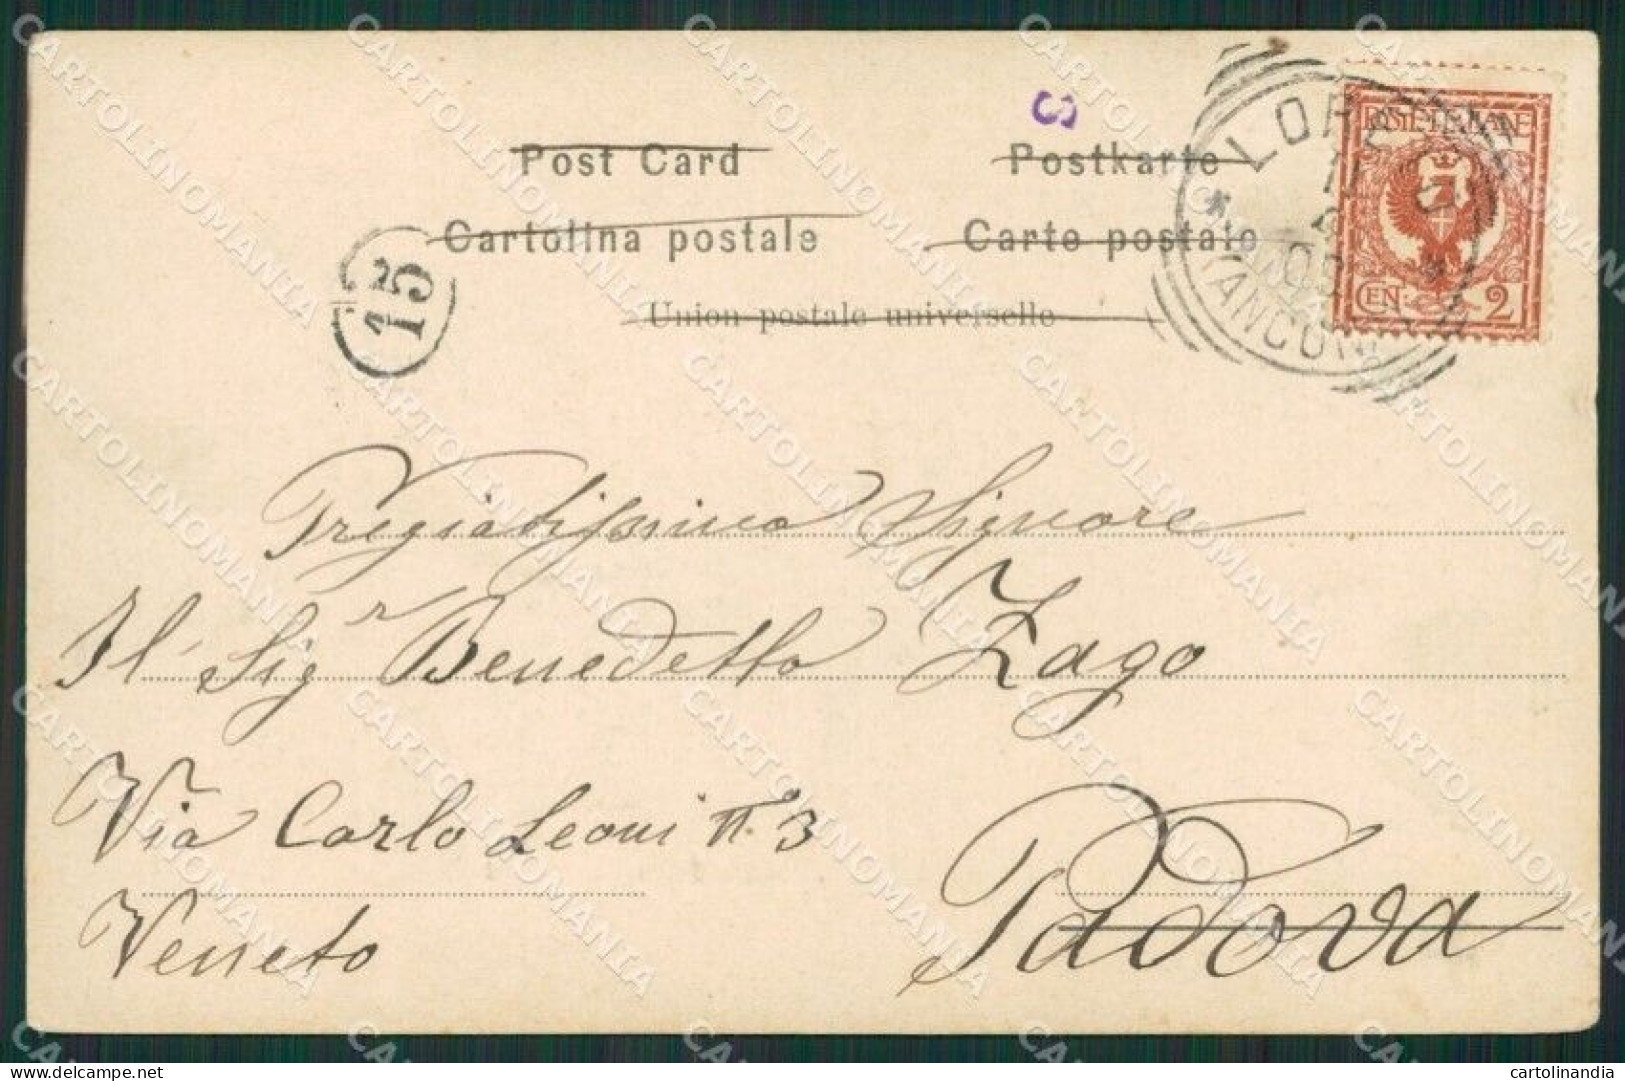 Post Card
Postkarte
Cartolina postale
Carte postale
Union postale universelle
15
S
POSTE ITALIANE
CEN. 2
Pregiatissimo Signore
Il Sigr Benedetto Zago
Via Carlo Leoni n° 3
Padova
Veneto
CARTOLINOMANIA
cartolinandia